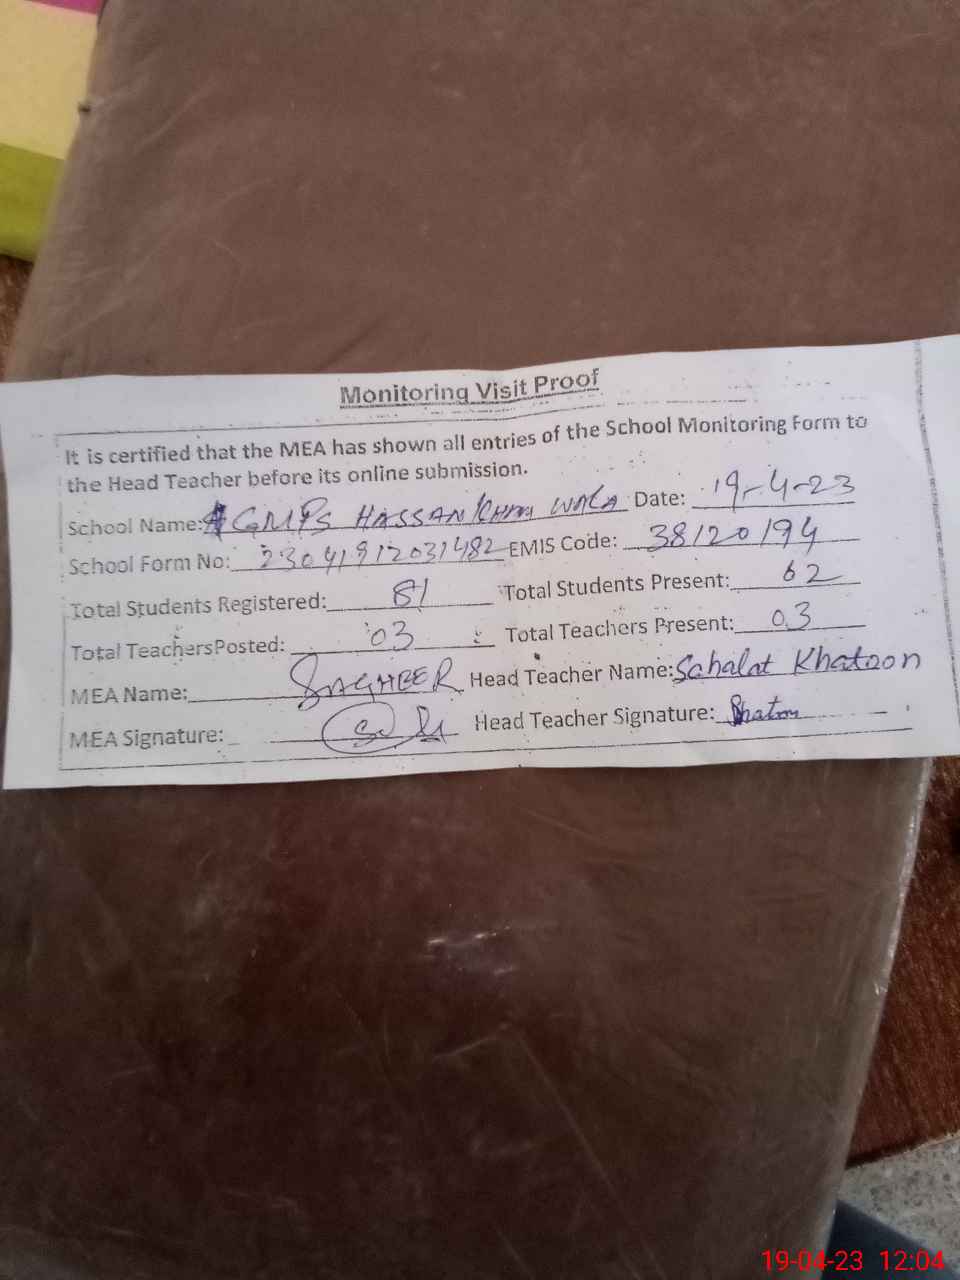 Monitoring Visit Proof
It is certified that the MEA has shown all entries of the School Monitoring Form to
the Head Teacher before its online submission.
School Name: GMPS HASSAN KHAN WALA Date: 19-4-23
School Form No: 23041912031482 EMIS Code: 38120194
Total Students Registered: 81 Total Students Present: 62
Total TeachersPosted: 03 Total Teachers Present: 03
MEA Name: SAGHEER Head Teacher Name: Sahalat Khatoon
MEA Signature: Head Teacher Signature: Khatoon
19-04-23 12:04